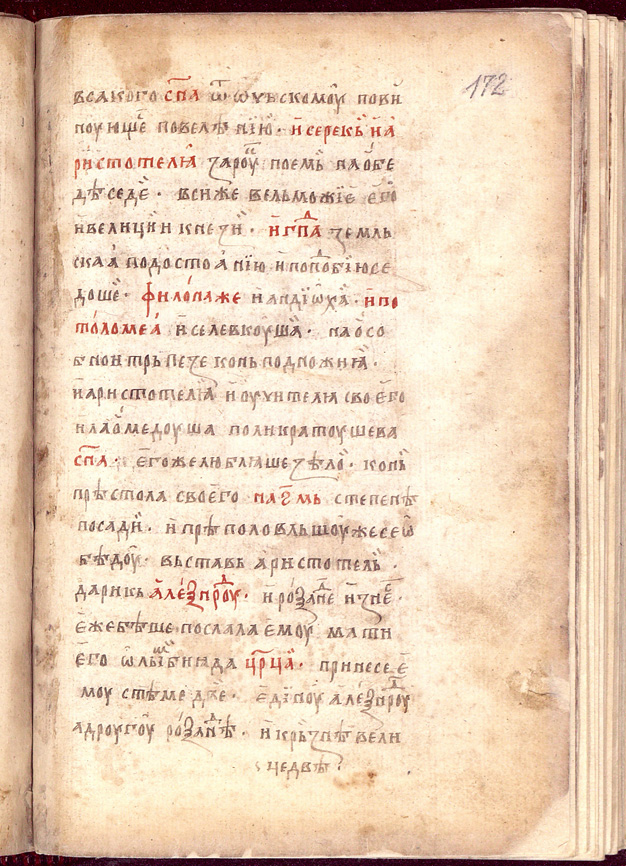 172
всакого сп҃а ѿ ѡчьскомоу пови
ноующе повелѣнїю · и серекь и а
ристотелꙗ за роу поемь на обе
дѣ седе · вси же вельможїе его
и велиции кнези · и гп҃да земль
скаа по достоанїю и по подобїю се
доше · филопа же и андїѡха · и по
толомеа и селевкоуша · на осо
бнои трьпезе конь подножиꙗ ·
и аристотелꙗ и оучителꙗ своего
и лаомедоуша поликратоушева
сп҃а · егоже люблꙗше зѣло · конь
прѣстола своего на г҃мь степенѣ
посади · и прѣполовльшоу же се ѡ
бѣдоу · вьставь аристотель ·
дарикь алеѯндроу · и роѯандѣ
еже бѣше послала емоу мати
его ѡлимбиада цр҃ца · принесе е
моу стеме двѣ · единоу алеѯндроу
а дроугоу роѯандѣ · и крьзнѣ вели
це двѣ ·